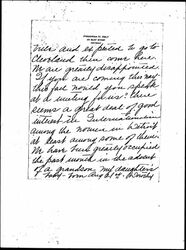 here and expected to go to
Cleveland then come here.
We are greatly disappointed.
If you are coming this way
this fall would you speak
at a meeting for us? There
seems a great deal of good
interest in Internationalism
among the women in Detroit
at least among some of them.
We have been greatly occupied
the past month in the advent
of a grandson, my daughter's
boy - born Aug 21st.